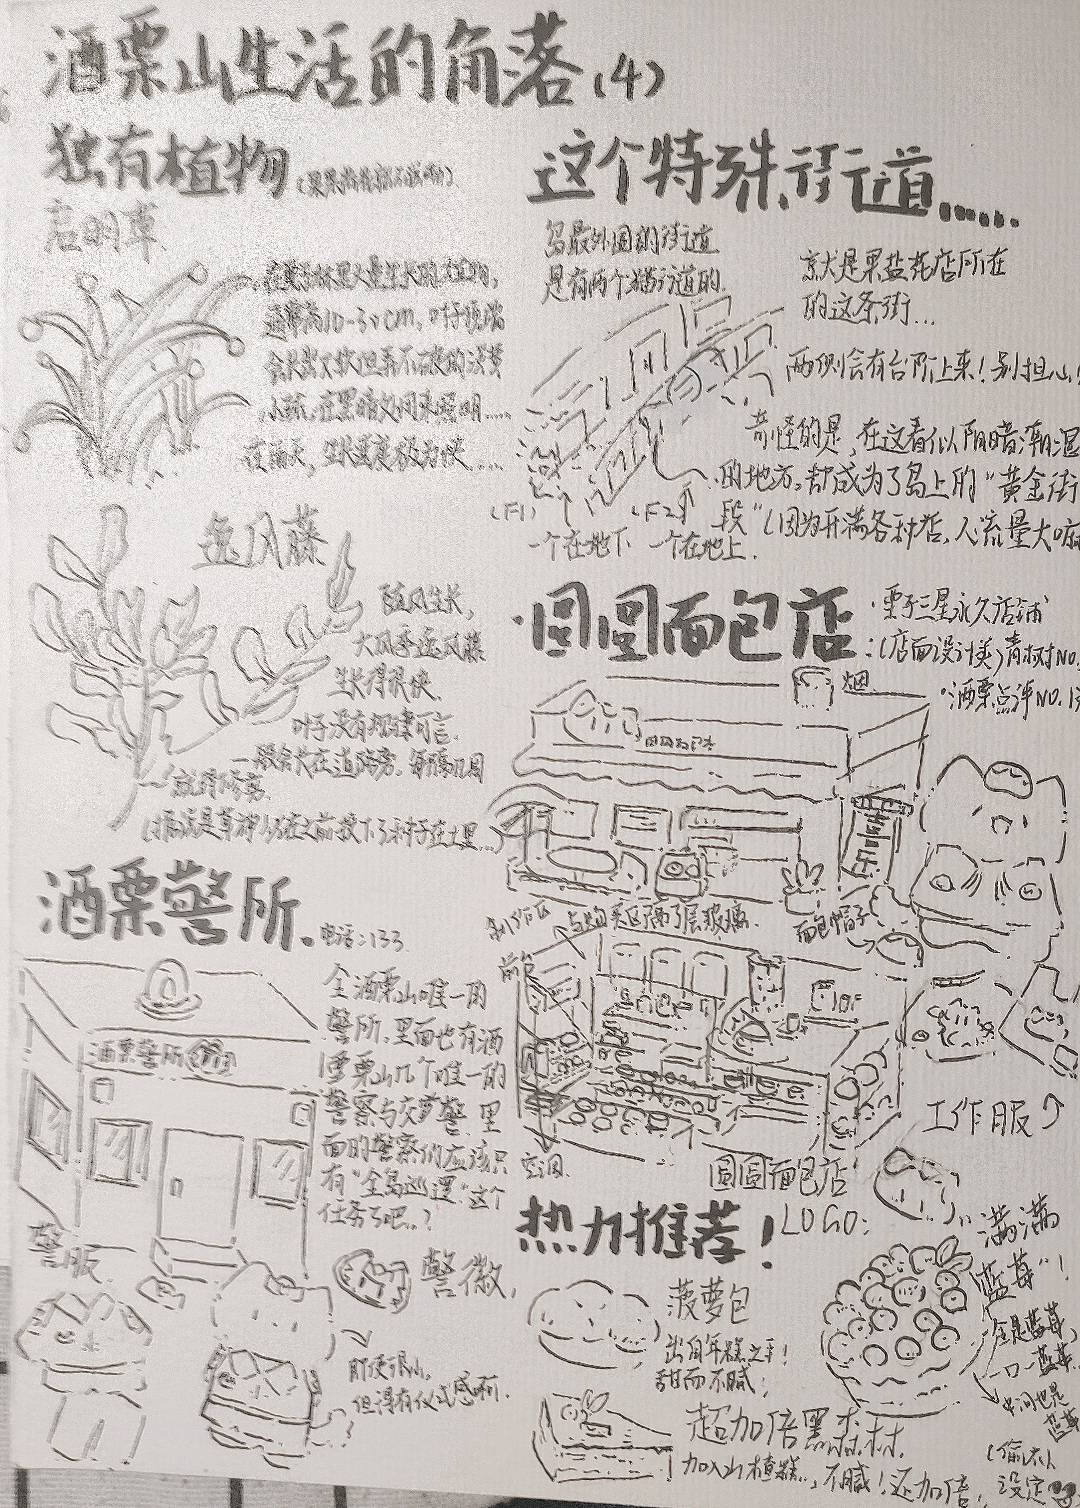 酒栗山生活的角落(4)
独有植物
启明草
通常高10-30cm,叶子顶端
小球,在黑暗处用来照明……
在雨天,生长速度极为快……
逸风藤
随风生长,
大风季逸风藤
生长得很快.
叶子没有规律可言.
一般会长在道路旁.每隔几周
就得修剪.
酒栗警所.
电话:133
酒栗警所
全酒栗山唯一的
警所.里面也有酒
栗山几个唯一的
警察与交警.里
面的警察们应该只
有“全岛巡逻”这个
任务了吧..?
警服
警徽,
即使很小,
但得有仪式感啊.
这个特殊街道……
岛最外围的街道
是有两个街道的.
就是果盐花店所在
的这条街…
两侧会有台阶上来!别担心!
奇怪的是,在这看似阴暗潮湿
的地方。却成为了岛上的“黄金街
段”(因为开满各种店,人流量大嘛
(F1)
(F2)
一个在地下
一个在地上.
圆圆面包店
·栗子三星永久店铺
:(店面设计类)青树NO.
·酒栗点评NO.1
烟
制作区
与购买区隔了层玻璃.
面包帽子
前台
空调
工作服
圆圆面包店
LOGO:
热力推荐!
菠萝包
出自年糕之手!
甜而不腻!
满满
蓝莓”!
全是蓝莓,
一口一蓝莓..
中间也是
蓝莓
超加倍黑森林.
加入山楂糕..,不腻!还加倍,